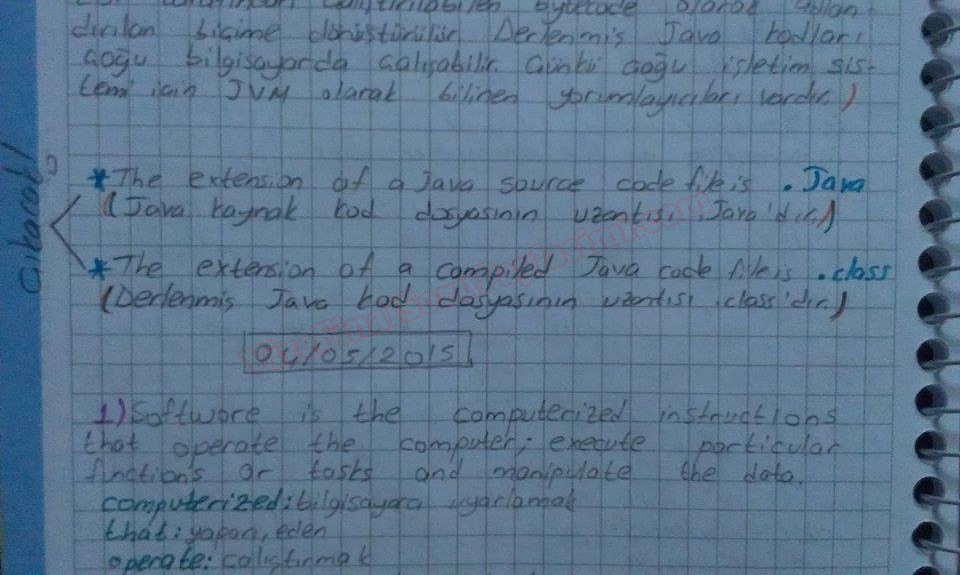 çalıştırılabilen bytecode olarak
dırılan biçime dönüştürülür. Derlenmiş Java kodları
çoğu bilgisayarda çalışabilir. Çünkü çoğu işletim sis-
temi için JVM olarak bilinen yorumlayıcıları vardır.)
*The extension of a Java source code file is .Java
(Java kaynak kod dosyasının uzantısı .Java'dır.)
*The extension of a compiled Java code file is .class
(Derlenmiş Java kod dosyasının uzantısı .class'dır.)
04/05/2015
1)Software is the computerized instructions
that operate the computer; execute particular
functions or tasks and manipulate the data.
computerized: bilgisayara uyarlamak
that: yapan, eden
operate: çalıştırmak